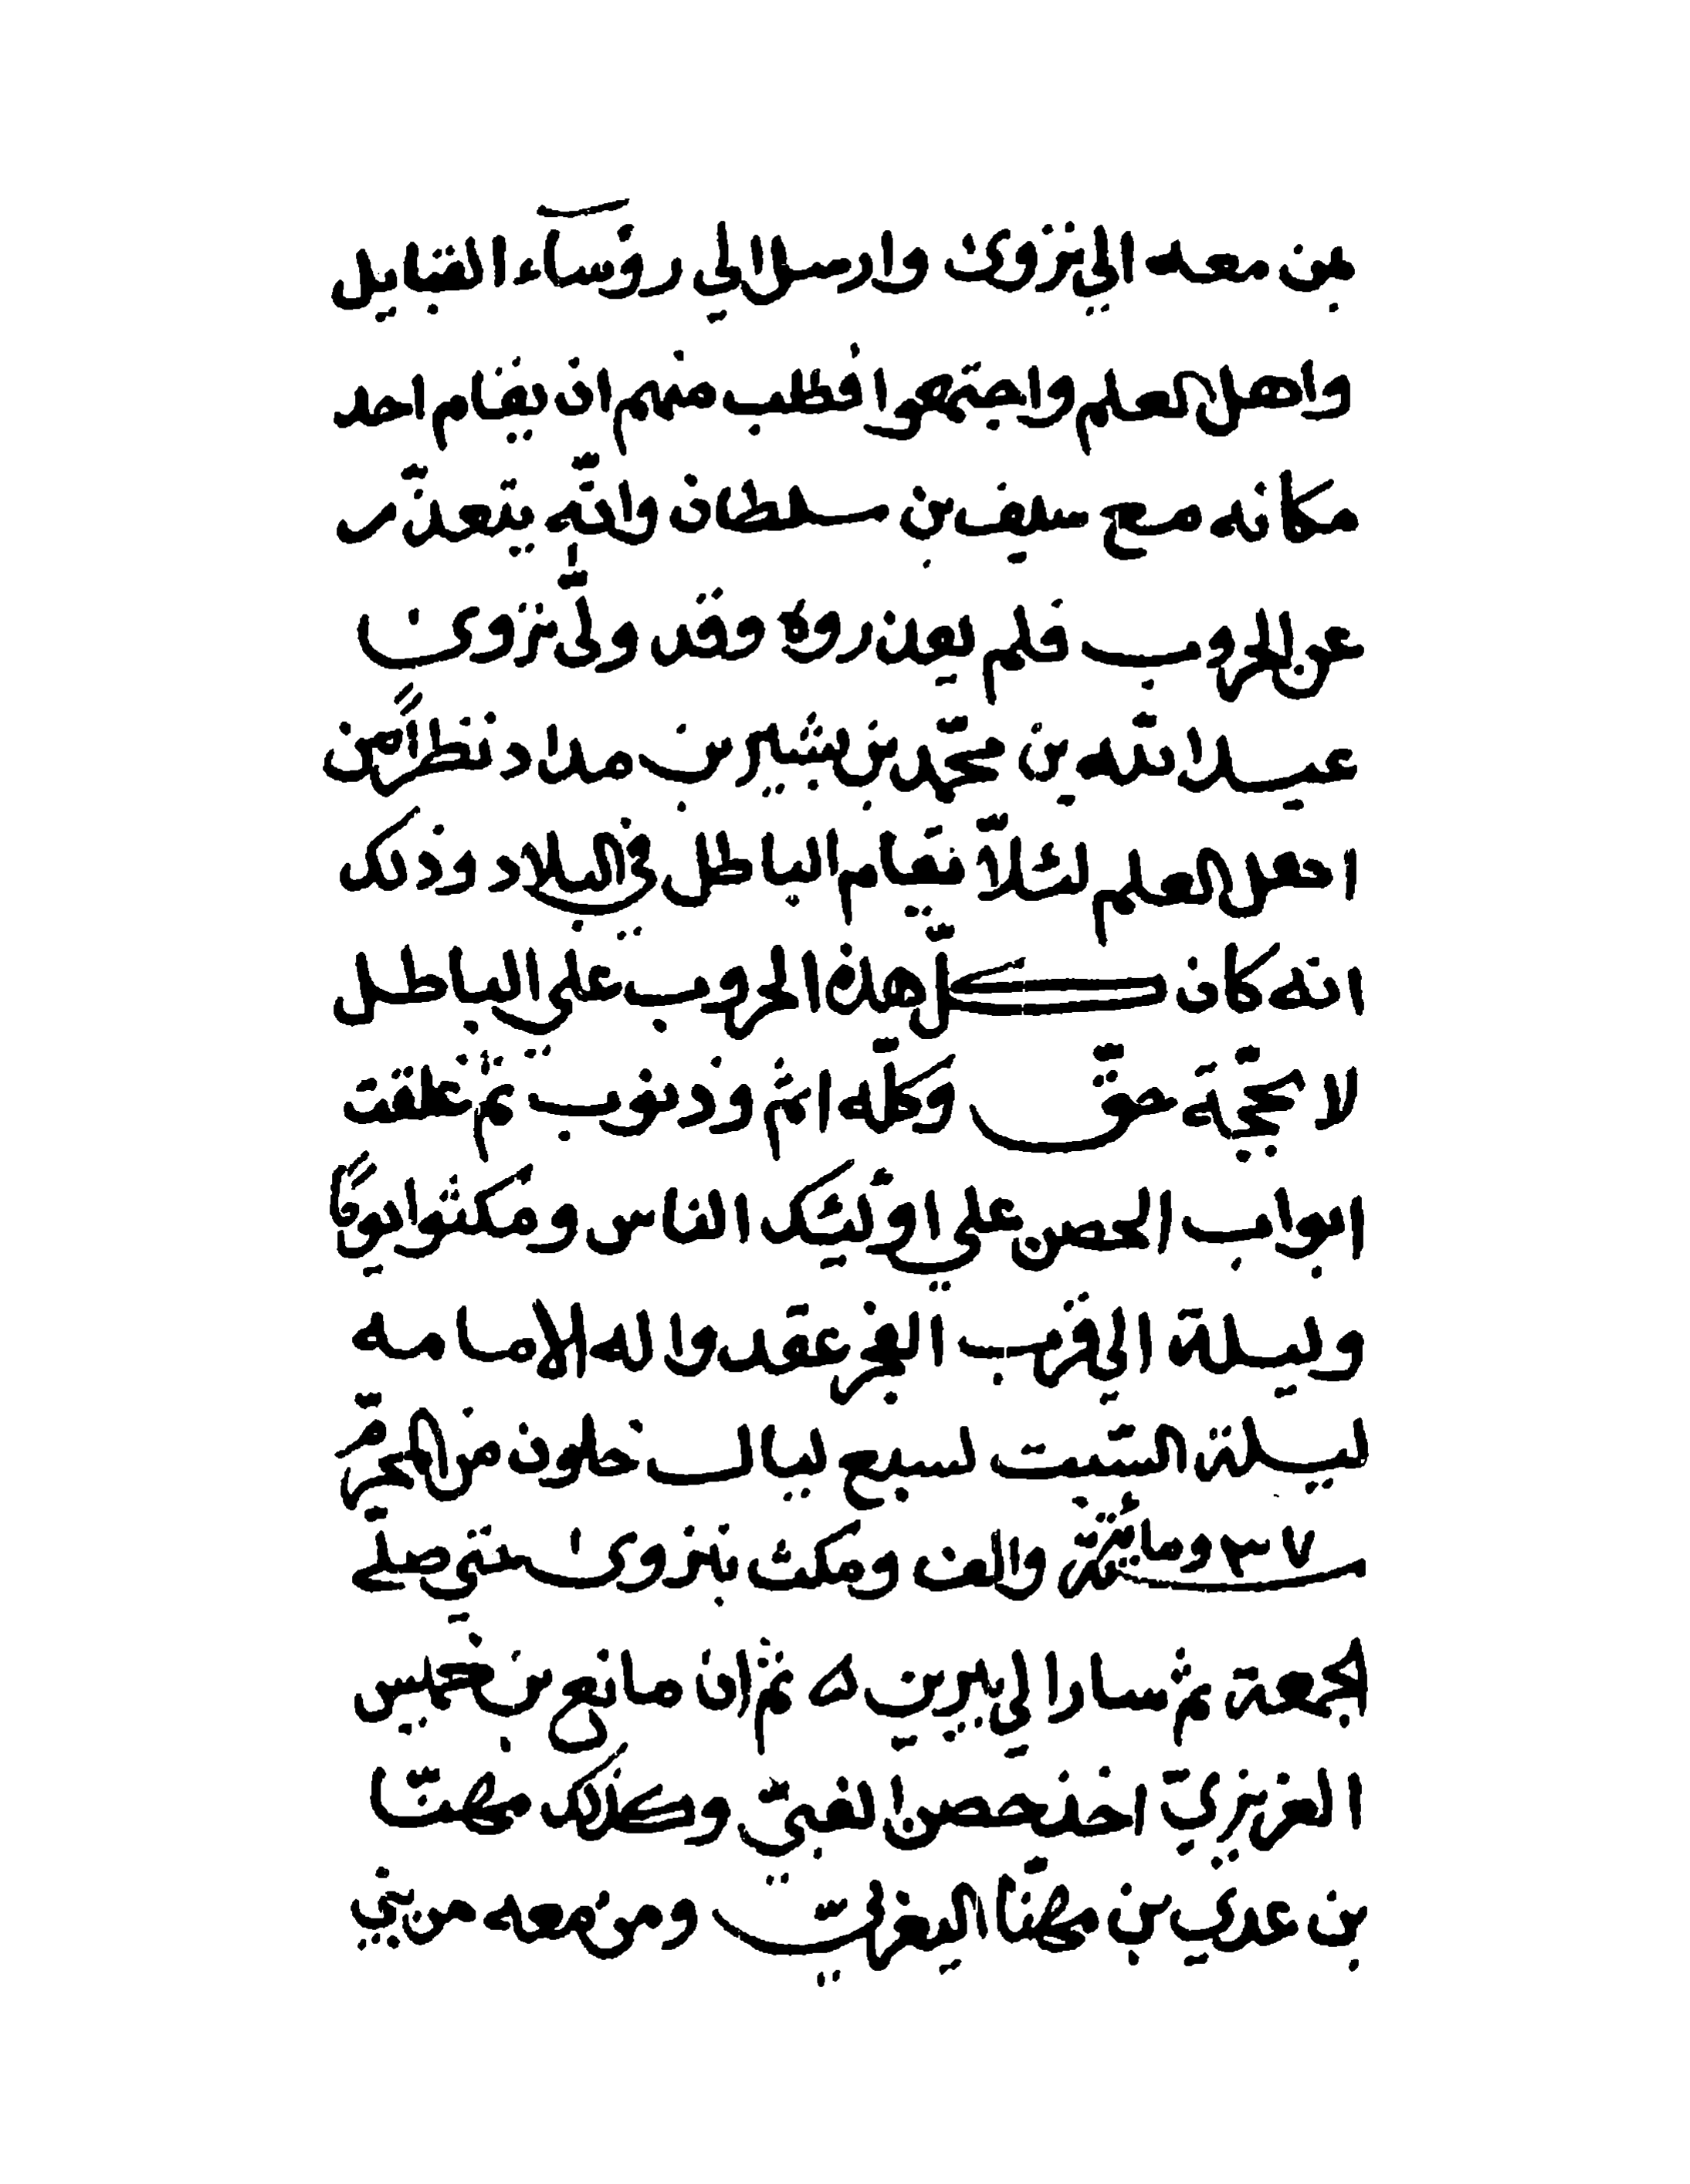 بمن معه الي نزوى وارسل الي رؤسآء القبايل
واهل العلم واجتمعوا فطلب منهم ان يقام احد
مكانه مع سيف بن سلطان وانّه يتعذّر
عن الحروب فلم يعذروه وقد ولّي نزوى
عبد الله بن محمّد بن بشير بن مداد نظراً من
اهل العلم لئلاّ يقام الباطل في البلاد وذلك
انه كان كلّ هذه الحروب علي الباطل
لا بحجّة حقّ وكلّه اثم وذنوب ثم غلقت
ابواب الحصن علي اولئيك الناس ومكثوا يومًا
وليلة الي قرب الفجر عقدوا له الامامه
ليلة السّبت لسبع ليال خلون من المحرّم
سنة ٣٧ ومائة والف ومكث بنزوى حتي صلّے
الجمعة ثم سار الي يبرين له ثم ان مانع بن خميس
العزيزيّ اخذ حصن الغبيّ وكذلك مهنّا
بن عدي بن مهنّا اليعربيّ ومن معه من بني